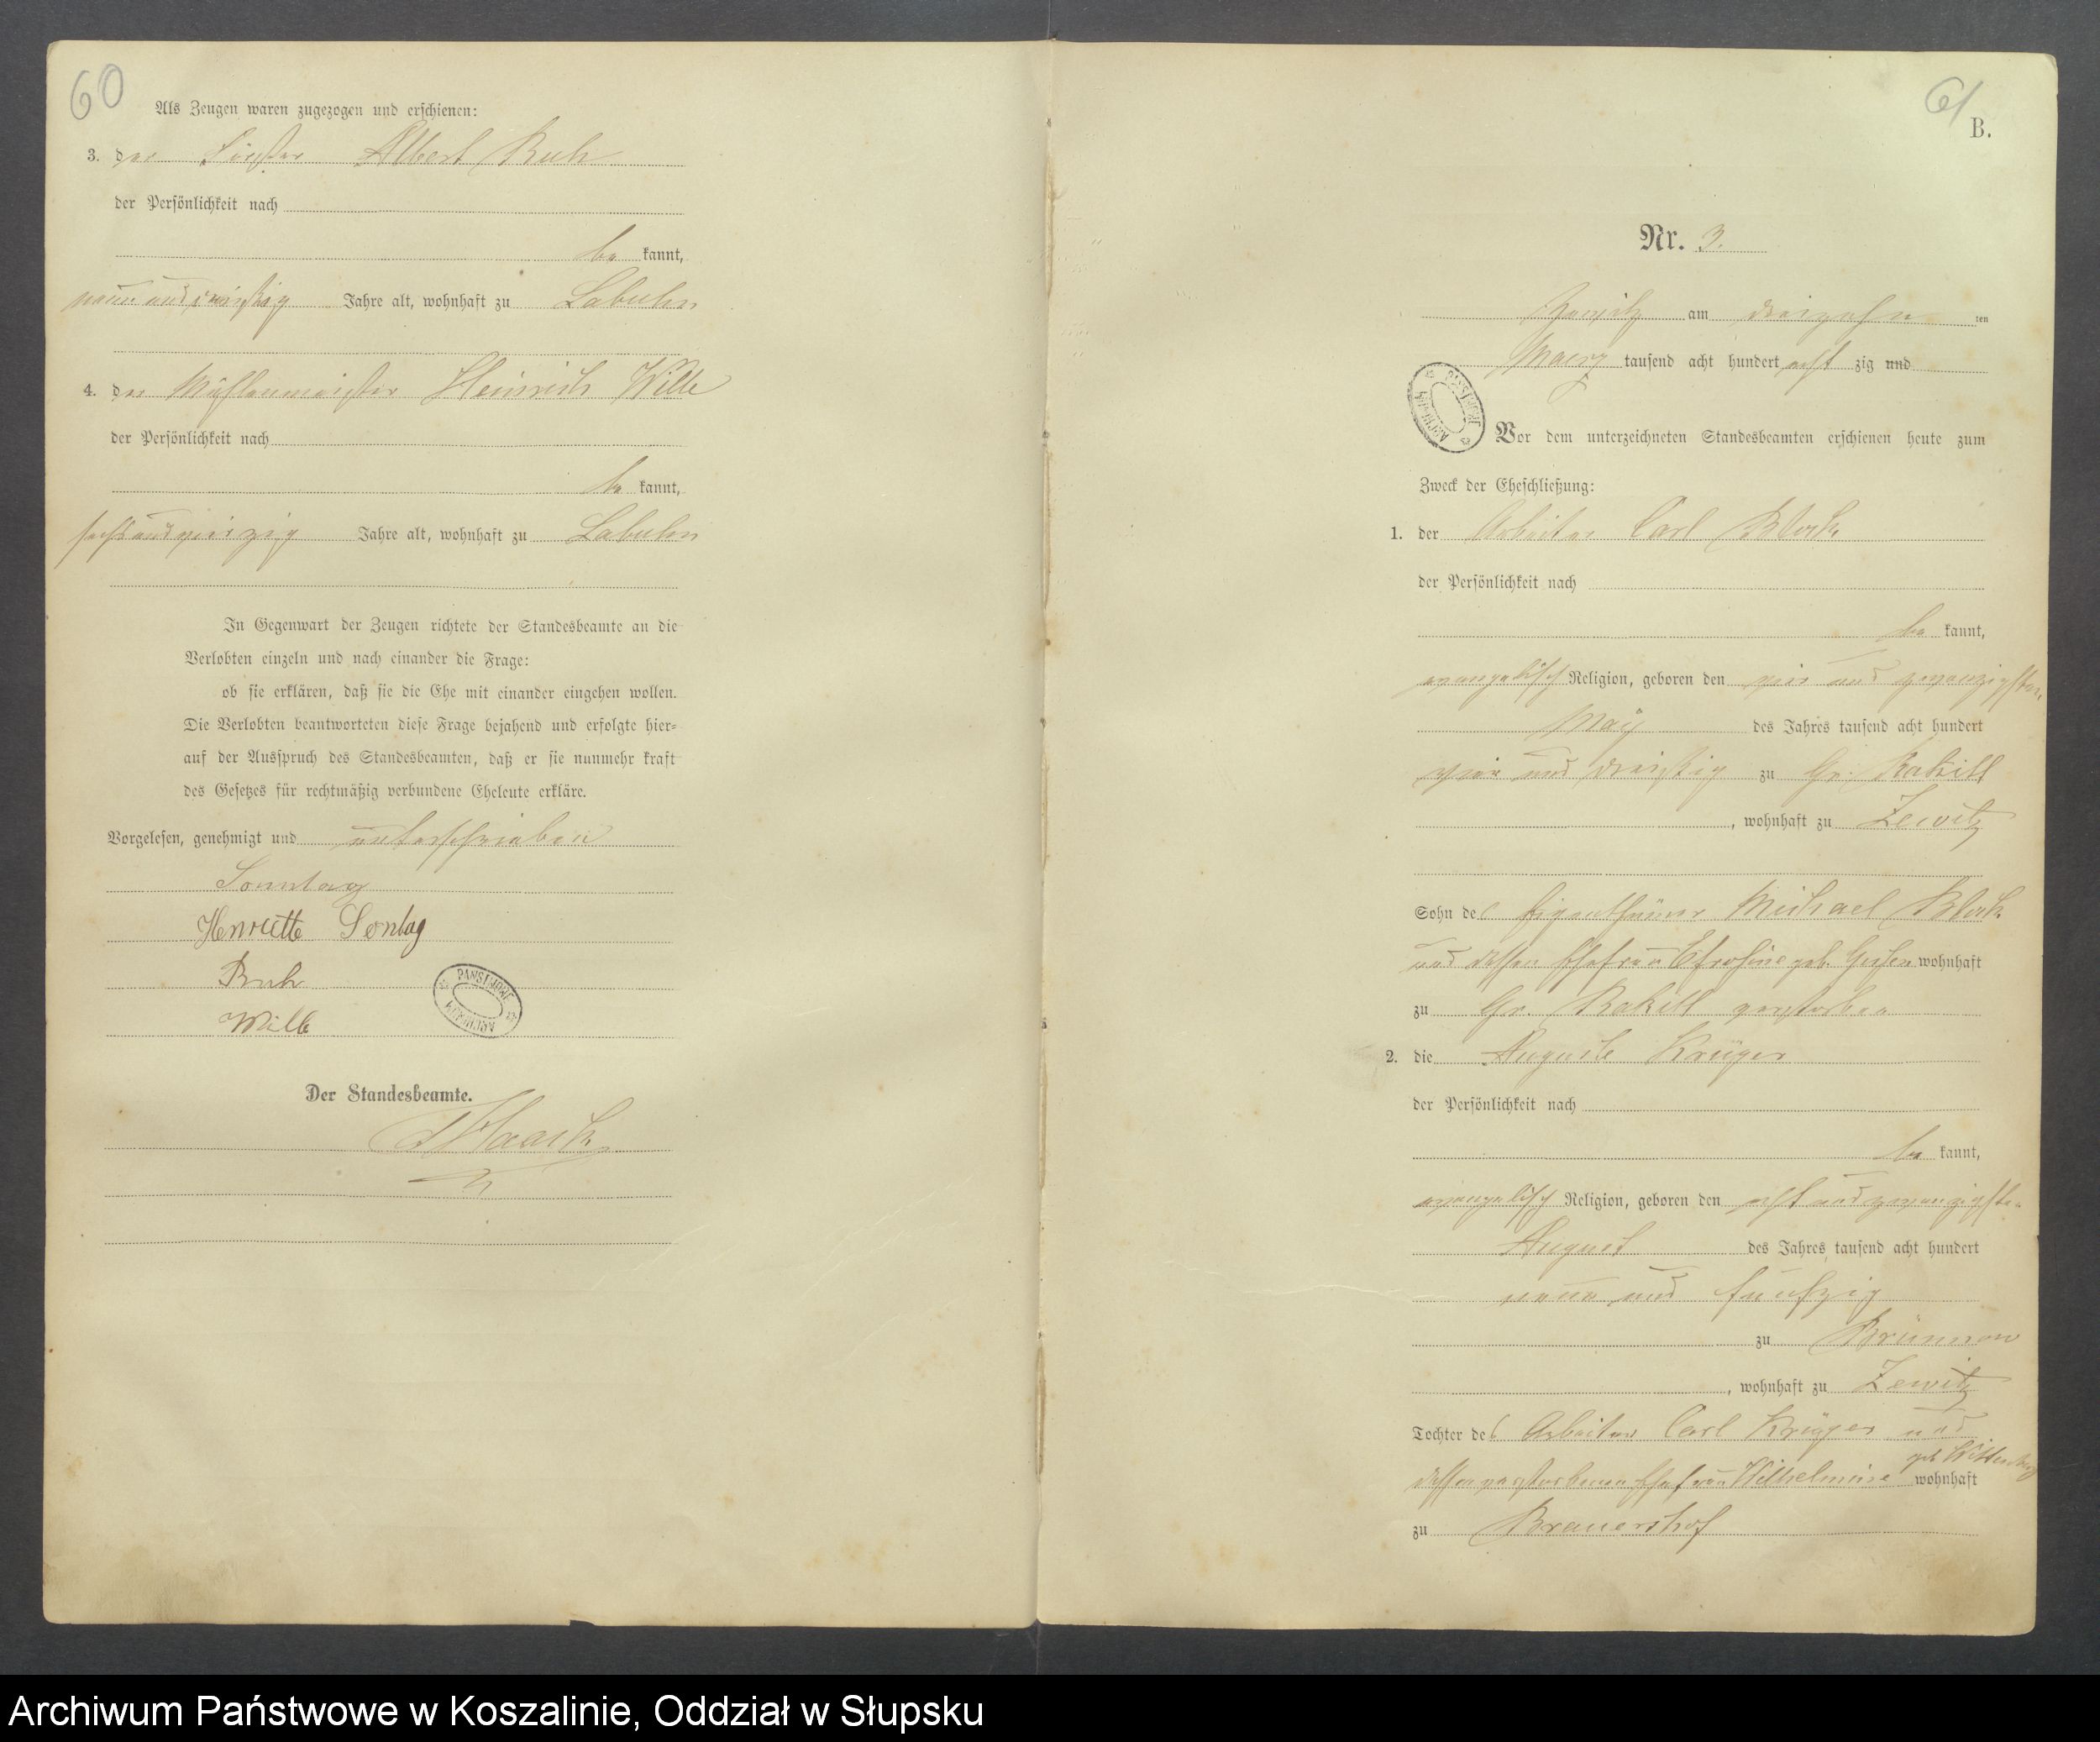 60
Als Zeugen waren zugezogen und erschienen:
3. der Förster Albert Ruh
der Persönlichkeit nach
be kannt,
neun und dreißig Jahre alt, wohnhaft zu Labuhn
4. der Mühlenmeister Heinrich Wille
der Persönlichkeit nach
be kannt,
sechs und vierzig Jahre alt, wohnhaft zu Labuhn
In Gegenwart der Zeugen richtete der Standesbeamte an die
Verlobten einzeln und nach einander die Frage:
ob sie erklären, daß sie die Ehe mit einander eingehen wollen.
Die Verlobten beantworteten diese Frage bejahend und erfolgte hier-
auf der Ausspruch des Standesbeamten, daß er sie nunmehr kraft
des Gesetzes für rechtmäßig verbundene Eheleute erkläre.
Vorgelesen, genehmigt und unterschrieben
Sonntag
Henriette Sontag
Ruh
Wille
Der Standesbeamte.
Haack
61
B.
Nr. 3.
Zewitz am dreizehn ten
Maerz tausend acht hundert acht zig und
Vor dem unterzeichneten Standesbeamten erschienen heute zum
Zweck der Eheschließung:
1. der Arbeiter Carl Block
der Persönlichkeit nach
be kannt,
evangelisch Religion, geboren den vier und zwanzigsten
May des Jahres tausend acht hundert
vier und dreißig zu Gr. Rakitt
, wohnhaft zu Zewitz
Sohn des Eigenthümer Michael Block
und dessen Ehefrau geb. wohnhaft
zu Gr. Rakitt verstorben
2. die Auguste Krüger
der Persönlichkeit nach
be kannt,
evangelisch Religion, geboren den acht und zwanzigsten
August des Jahres tausend acht hundert
neun und fünfzig
zu Brünnow
, wohnhaft zu Zewitz
Tochter des Arbeiter Carl Krüger und
dessen verstorbenen Ehefrau Wilhelmine geb. wohnhaft
zu Brauershof
Archiwum Państwowe w Koszalinie, Oddział w Słupsku